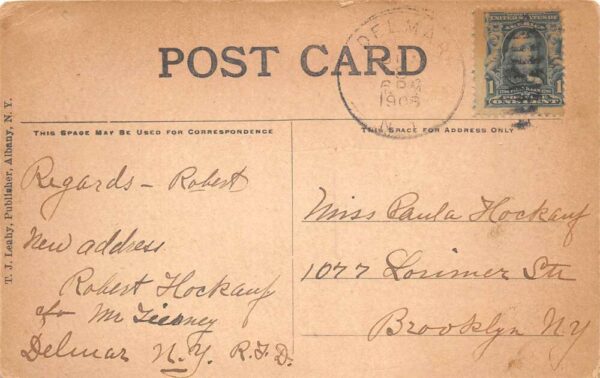 POST CARD
DELMAR
N.Y.
UNITED STATES OF AMERICA
1 1
ONE CENT
THIS SPACE MAY BE USED FOR CORRESPONDENCE
THIS SPACE FOR ADDRESS ONLY
T. J. Leahy, Publisher, Albany, N. Y.
Regards - Robert
New address
Robert Hockauf
c/o Mr Tierney
Delmar N.Y. R.F.D.
Miss Paula Hockauf
1077 Lorimer Str
Brooklyn NY